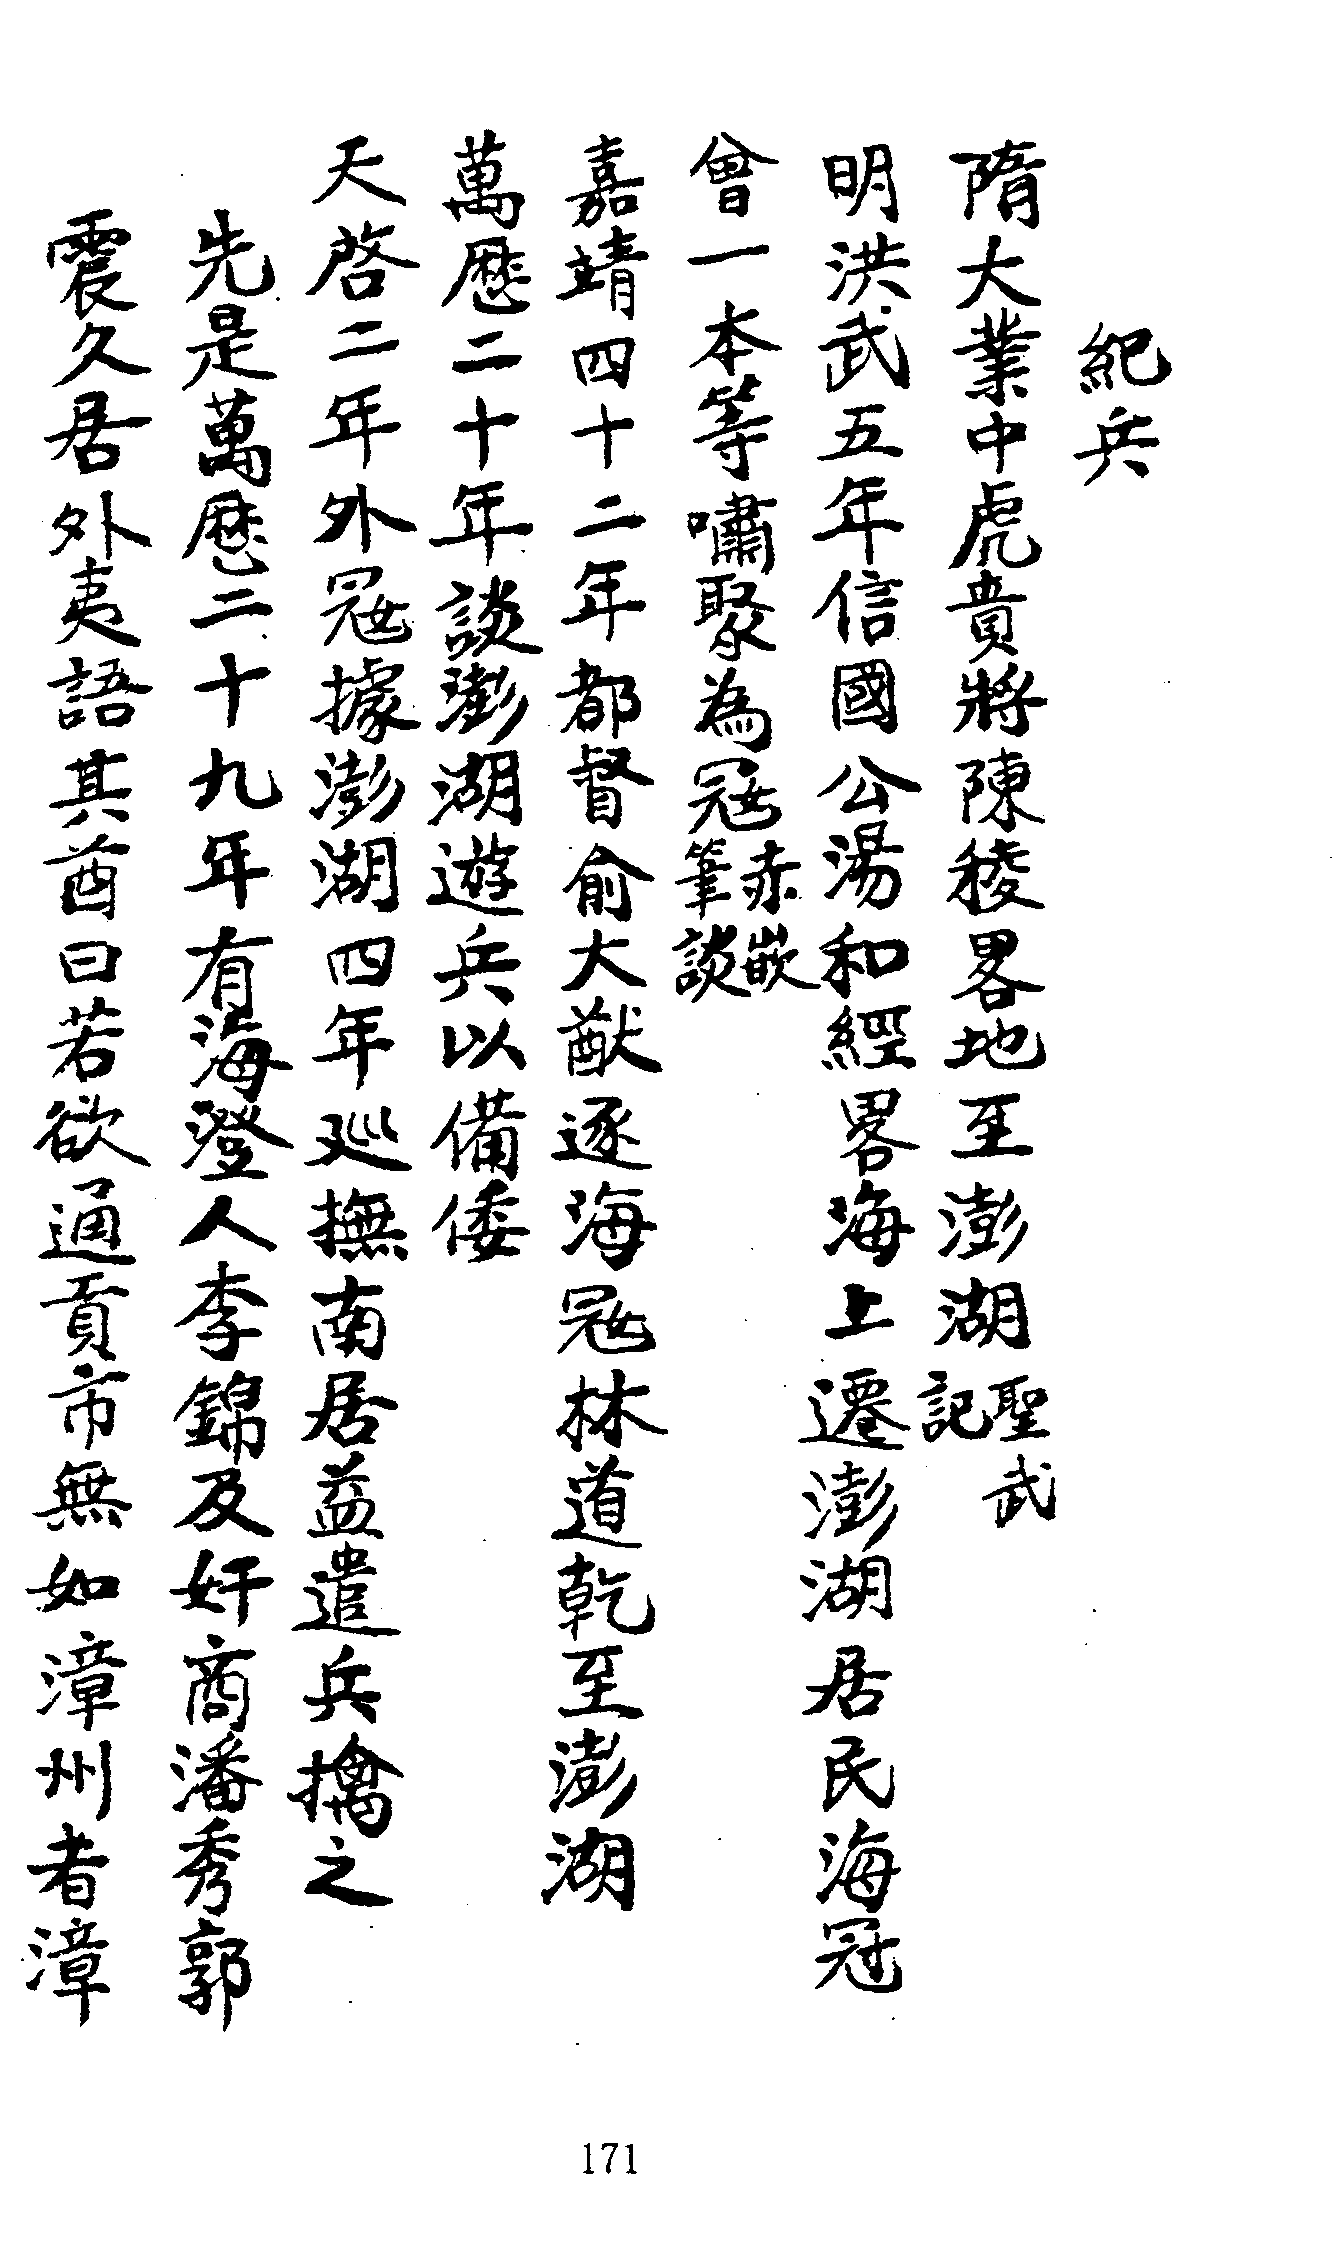 紀兵
隋大業中虎賁將陳稜畧地至澎湖聖武記
明洪武五年信國公湯和經畧海上遷澎湖居民海冦
曾一本等嘯聚為冦赤嵌筆談
嘉靖四十二年都督俞大猷逐海冦林道乾至澎湖
萬歷二十年談澎湖遊兵以備倭
天啓二年外冦據澎湖四年廵撫南居益遣兵擒之
先是萬歷二十九年有海澄人李錦及奸商潘秀郭
震久居外夷語其酋曰若欲通貢市無如漳州者漳
171